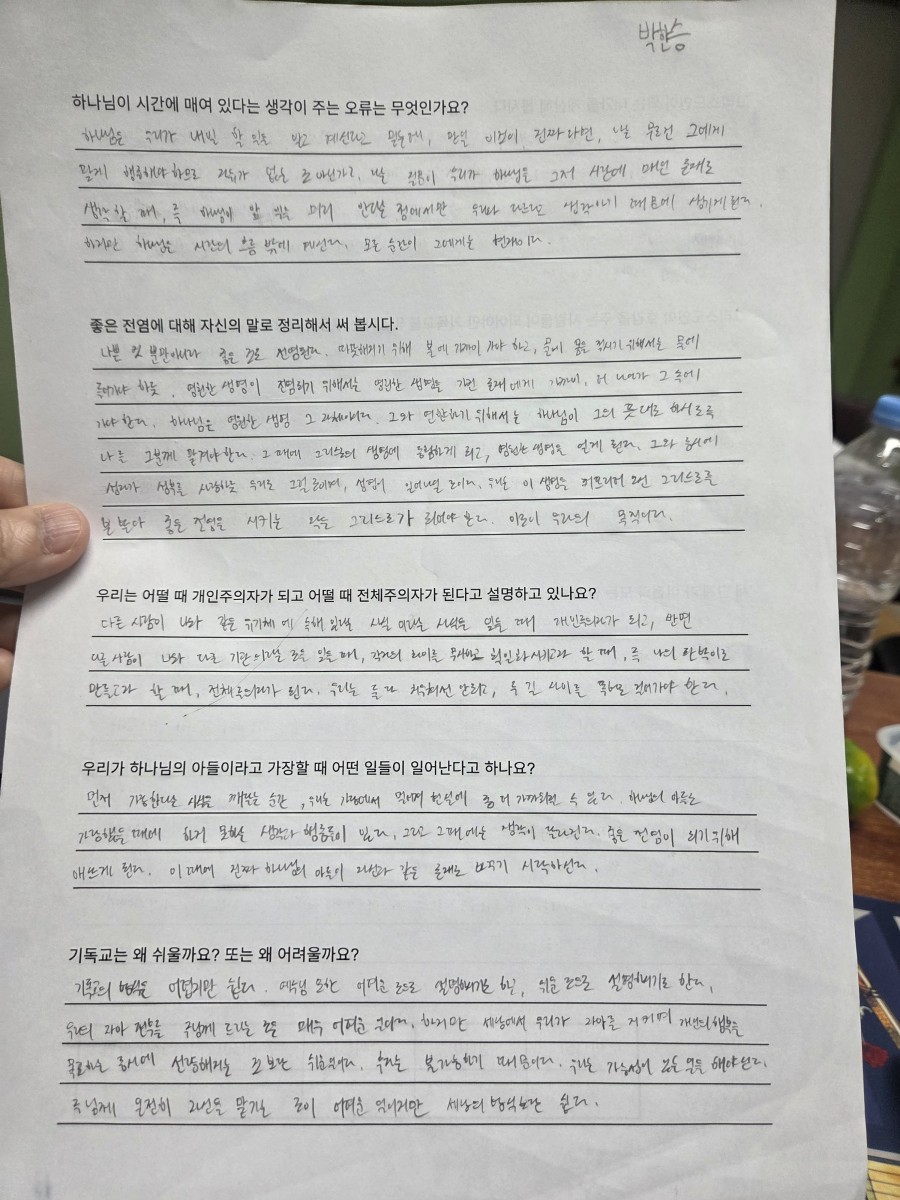 박한승
하나님이 시간에 매여 있다는 생각이 주는 오류는 무엇인가요?
하나님은 우리가 내일 할 일을 알고 계신다고 믿는데, 만일 이것이 진짜 다면, 나는 무조건 그에게
맞게 행동해야 하므로 자유가 없는 것 아닌가? 나는 질문이 우리가 하나님을 그저 시간에 매인 존재로
생각할 때, 즉 하나님이 앞 일을 미리 안다는 점에서만 우리와 다르다고 생각하기 때문에 생기게 된다.
하지만 하나님은 시간의 흐름 밖에 계신다. 모든 순간이 그에게는 현재이다.
좋은 전염에 대해 자신의 말로 정리해서 써 봅시다.
나쁜 것 뿐만아니라 좋은 것도 전염된다. 따뜻해지기 위해 불에 가까이 가야 하고, 몸이 물을 적시기 위해서는 물에
들어가야 하듯, 영원한 생명이 전염되기 위해서는 영원한 생명을 가진 존재에게 가까이, 더 나아가 그 속에
가야 한다. 하나님은 영원한 생명 그 자체이시다. 그와 연합하기 위해서는 하나님이 그의 뜻대로 하시도록
나를 그분께 맡겨야 한다. 그 때에 그리스도의 생명에 동참하게 되고, 영원한 생명을 얻게 된다. 그와 동시에
성자가 성부를 사랑하듯 우리도 그럴 것이며, 성령이 일어나실 것이다. 우리는 이 생명을 퍼뜨리러 오신 그리스도를
본받아 좋은 전염을 시키는 작은 그리스도가 되어야 한다. 이것이 우리의 목적이다.
우리는 어떨 때 개인주의자가 되고 어떨 때 전체주의자가 된다고 설명하고 있나요?
다른 사람이 나와 같은 유기체에 속해 있다는 사실 이라는 사실을 잊을 때 개인주의자가 되고, 반면
다른 사람이 나와 다른 기관이라는 것을 잊을 때, 각자의 차이를 무시하고 획일화시키고자 할 때, 즉 나의 판박이로
만들고자 할 때, 전체주의자가 된다. 우리는 둘 다 치우쳐선 안되고, 두 길 사이를 똑바로 걸어가야 한다.
우리가 하나님의 아들이라고 가장할 때 어떤 일들이 일어난다고 하나요?
먼저 가장한다는 사실을 깨닫는 순간, 우리는 가장에서 현실에 좀 더 가까워질 수 있다. 하나님의 아들로
가장했을 때에 하지 못할 생각과 행동들이 있다. 그리고 그때에는 생각이 달라진다. 좋은 전염이 되기 위해
애쓰게 된다. 이 때에 진짜 하나님의 아들이 자신과 같은 존재로 바꾸기 시작하신다.
기독교는 왜 쉬울까요? 또는 왜 어려울까요?
기독교의 방식은 어렵지만 쉽다. 예수님 또한 어려운 것으로 설명하기도 하고, 쉬운 것으로 설명하기도 한다.
우리의 자아 전부를 주님께 드리는 것은 매우 어려운 일이다. 하지만 세상에서 우리가 자아를 지키며 개인의 행복을
목표하는 동시에 선량해지는 것 보단 쉬운일이다. 후자는 불가능하기 때문이다. 우리는 가능성이 있는 일을 해야한다.
주님께 온전히 자신을 맡기는 것이 어려운 일이지만 세상의 방식보단 쉽다.